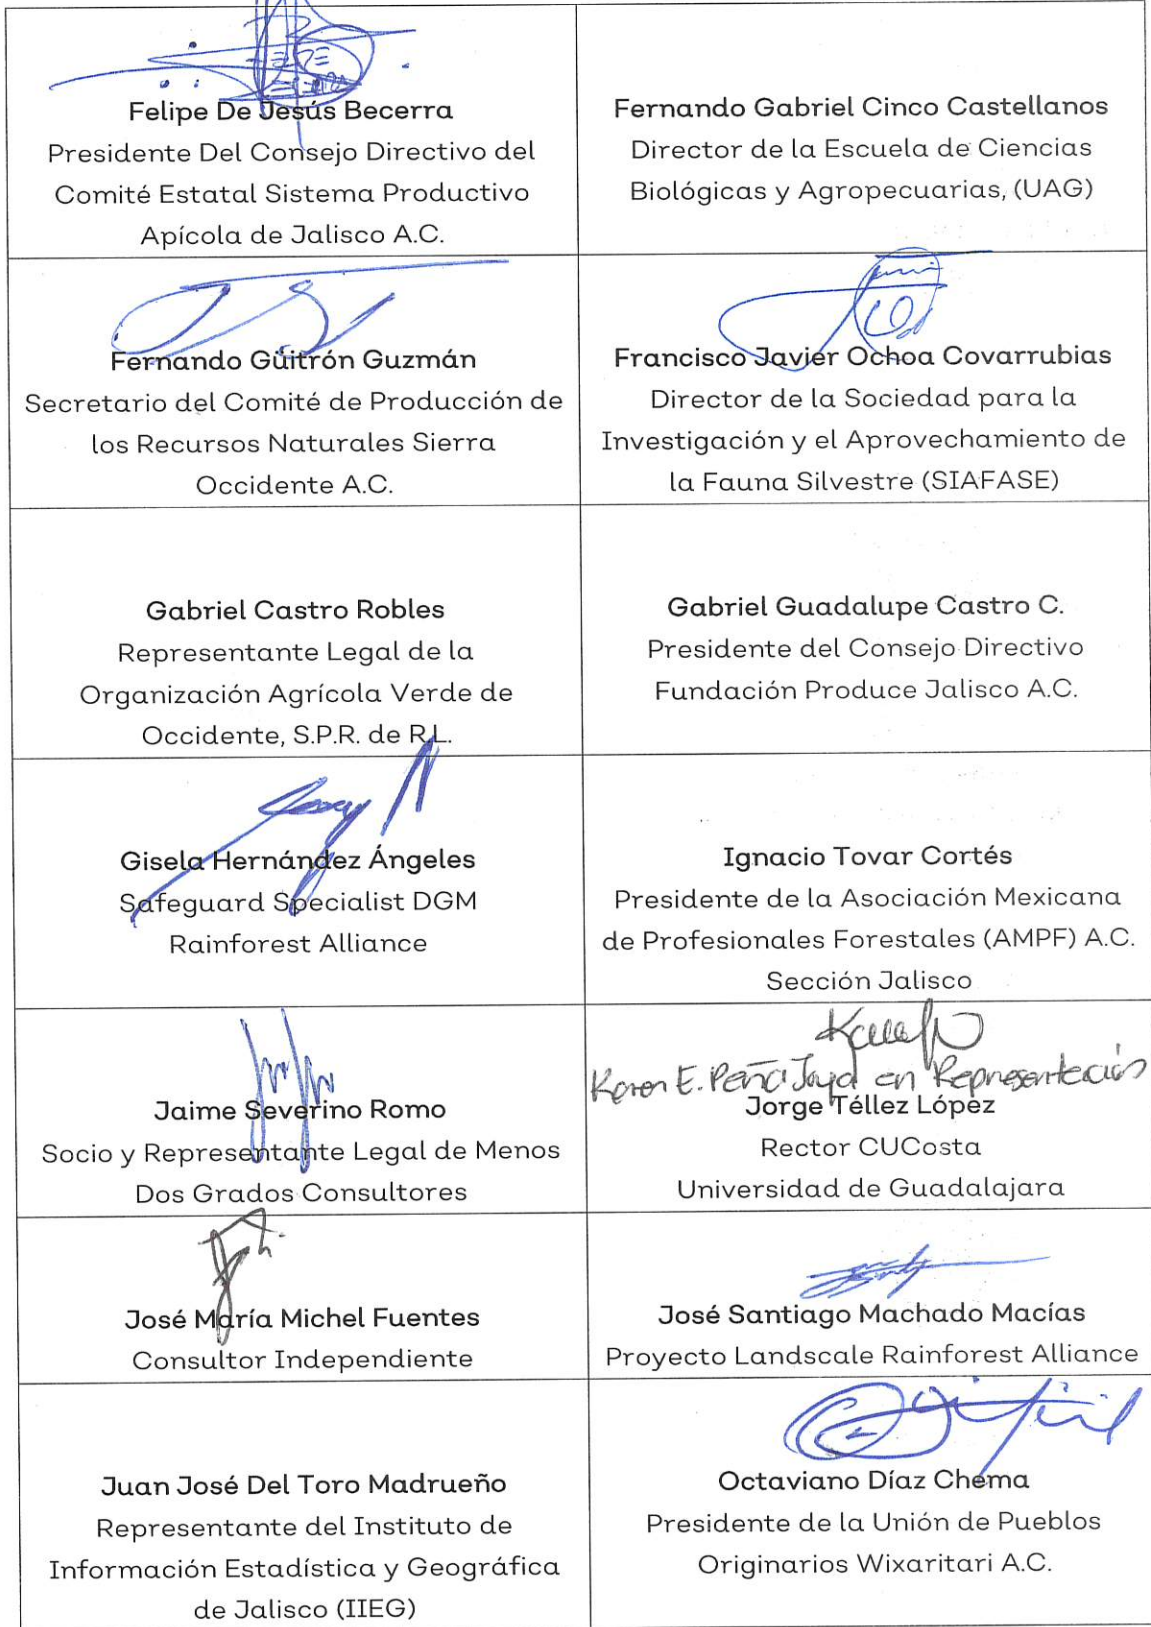 Felipe De Jesús Becerra
Presidente Del Consejo Directivo del
Comité Estatal Sistema Productivo
Apícola de Jalisco A.C.
Fernando Gabriel Cinco Castellanos
Director de la Escuela de Ciencias
Biológicas y Agropecuarias, (UAG)
Fernando Güitrón Guzmán
Secretario del Comité de Producción de
los Recursos Naturales Sierra
Occidente A.C.
Francisco Javier Ochoa Covarrubias
Director de la Sociedad para la
Investigación y el Aprovechamiento de
la Fauna Silvestre (SIAFASE)
Gabriel Castro Robles
Representante Legal de la
Organización Agrícola Verde de
Occidente, S.P.R. de R.L.
Gabriel Guadalupe Castro C.
Presidente del Consejo Directivo
Fundación Produce Jalisco A.C.
Gisela Hernández Ángeles
Safeguard Specialist DGM
Rainforest Alliance
Ignacio Tovar Cortés
Presidente de la Asociación Mexicana
de Profesionales Forestales (AMPF) A.C.
Sección Jalisco
Jaime Severino Romo
Socio y Representante Legal de Menos
Dos Grados Consultores
Karen E. Peña Joya en Representación
Jorge Téllez López
Rector CUCosta
Universidad de Guadalajara
José María Michel Fuentes
Consultor Independiente
José Santiago Machado Macías
Proyecto Landscale Rainforest Alliance
Juan José Del Toro Madrueño
Representante del Instituto de
Información Estadística y Geográfica
de Jalisco (IIEG)
Octaviano Díaz Chema
Presidente de la Unión de Pueblos
Originarios Wixaritari A.C.